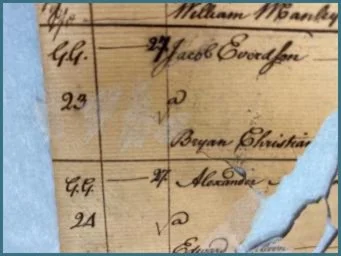 William Manley
G.G. — 27 Jacob Everdson
23 a
Bryan Christian
G.G. — 27 Alexander
24 a
Edward